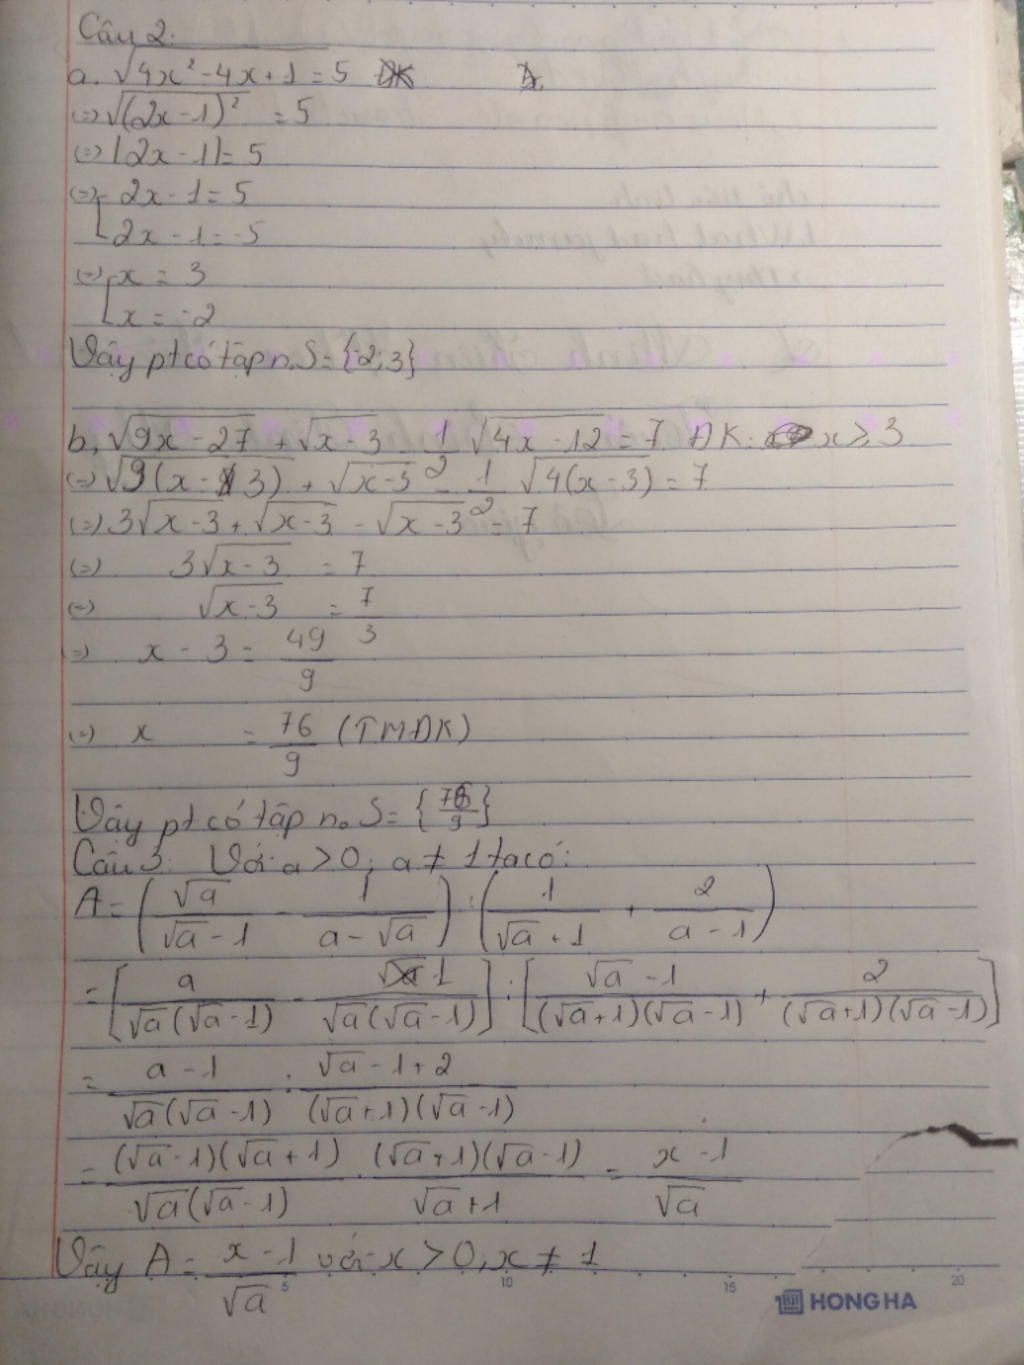 Câu 2:
a. √(4x² - 4x + 1) = 5
(=) √((2x - 1)²) = 5
(=) |2x - 1| = 5
(=) [ 2x - 1 = 5
[ 2x - 1 = -5
(=) [ x = 3
[ x = -2
Vậy pt có tập n₀ S = {-2; 3}
b, √(9x - 27) + √(x - 3) - 1/2 √(4x - 12) = 7 ĐK: x ≥ 3
(=) √(9(x - 3)) + √(x - 3) - 1/2 √(4(x - 3)) = 7
(=) 3√(x - 3) + √(x - 3) - √(x - 3) = 7
(=) 3√(x - 3) = 7
(=) √(x - 3) = 7/3
(=) x - 3 = 49/9
(=) x = 76/9 (TMĐK)
Vậy pt có tập n₀ S = {76/9}
Câu 3: Với a > 0; a ≠ 1 ta có:
A = (√a/(√a - 1) - 1/(a - √a)) : (1/(√a + 1) + 2/(a - 1))
= [a/(√a(√a - 1)) - 1/(√a(√a - 1))] : [(√a - 1)/((√a + 1)(√a - 1)) + 2/((√a + 1)(√a - 1))]
= (a - 1)/(√a(√a - 1)) : (√a - 1 + 2)/((√a + 1)(√a - 1))
= (√a - 1)(√a + 1)/(√a(√a - 1)) . (√a + 1)(√a - 1)/(√a + 1) = (x - 1)/√a
Vậy A = (x - 1)/√a với x > 0; x ≠ 1
5 10 15 20
HONG HA